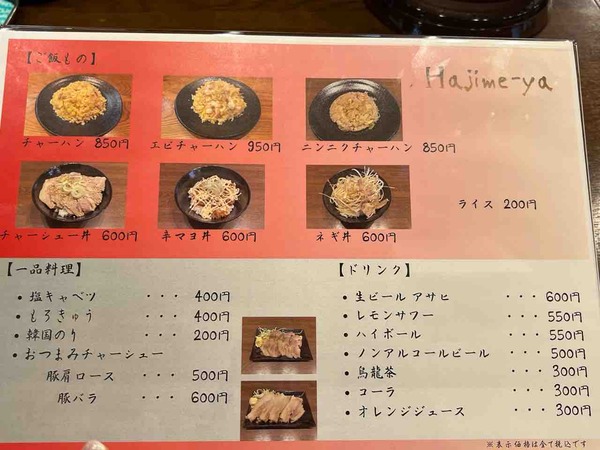 【ご飯もの】
Hajime-ya
チャーハン 850円
エビチャーハン 950円
ニンニクチャーハン 850円
チャーシュー丼 600円
辛マヨ丼 600円
ネギ丼 600円
ライス 200円
【一品料理】
・塩キャベツ ・・・ 400円
・もろきゅう ・・・ 400円
・韓国のり ・・・ 200円
・おつまみチャーシュー
豚肩ロース ・・・ 500円
豚バラ ・・・ 600円
【ドリンク】
・生ビール アサヒ ・・・ 600円
・レモンサワー ・・・ 550円
・ハイボール ・・・ 550円
・ノンアルコールビール ・・・ 500円
・烏龍茶 ・・・ 300円
・コーラ ・・・ 300円
・オレンジジュース ・・・ 300円
※表示価格は全て税込です